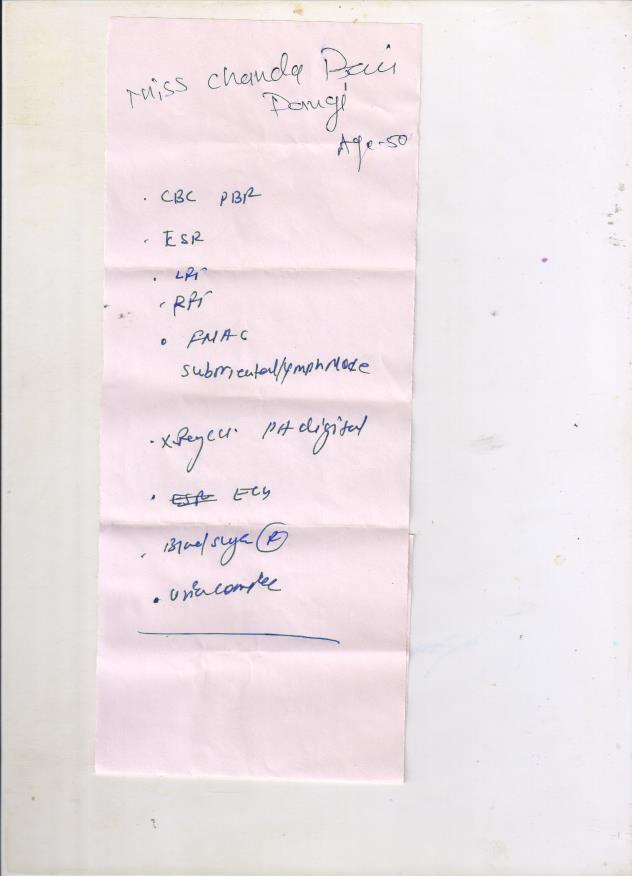 Miss Chanda Bai
Dangi
Age-50
. CBC PBF
. ESR
. LFT
. RFT
. FNAC
submental lymph Node
. X Ray CH. PA digital
. ESR ECG
. Blood sugar (R)
. Urine complete